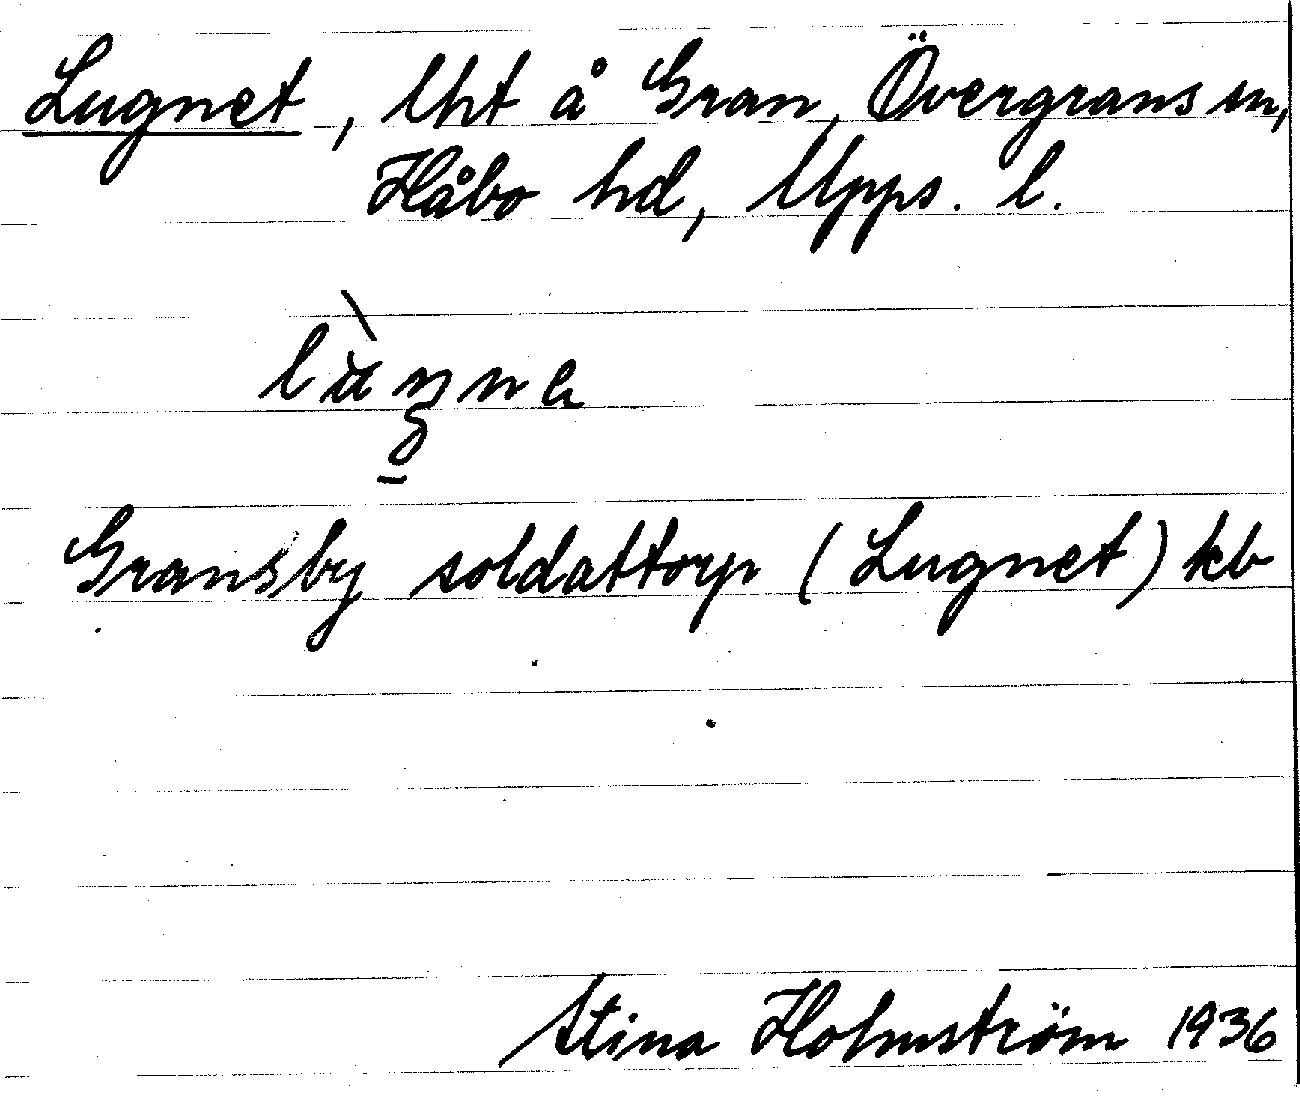 Lugnet, lht å Gran, Övergrans sn,
Håbo hd, Upps. l.
Gransby soldattorp (Lugnet) kb
Stina Holmström 1936